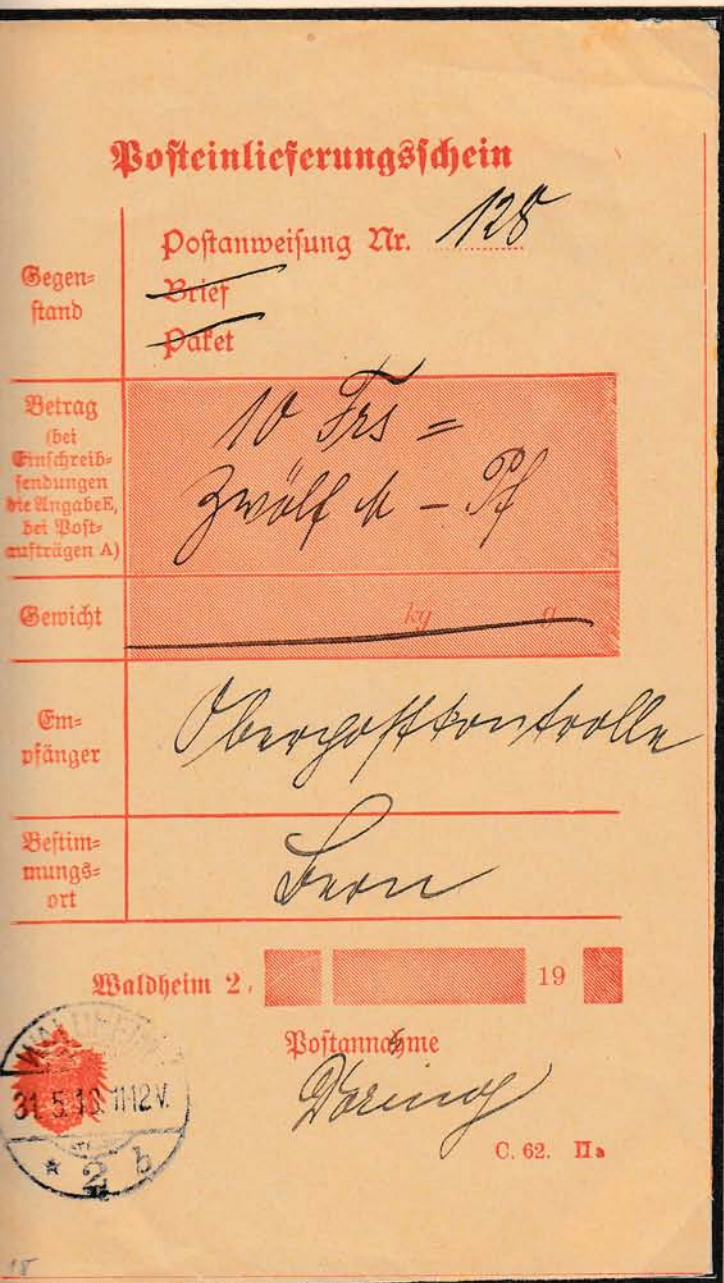 Posteinlieferungsschein
Gegen=
stand
Postanweisung Nr. 128
Brief
Paket
Betrag
(bei
Einschreib=
sendungen
die Angabe E,
bei Post=
aufträgen A)
10 Frs =
Zwölf M – Pf
Gewicht
kg g
Em=
pfänger
Oberpostkontrolle
Bestim=
mungs=
ort
Bern
Waldheim 2, 19
Postannahme
Döring
C. 62. IIa
WALDHEIM
31.5.18. 11-12 V.
* 2 b